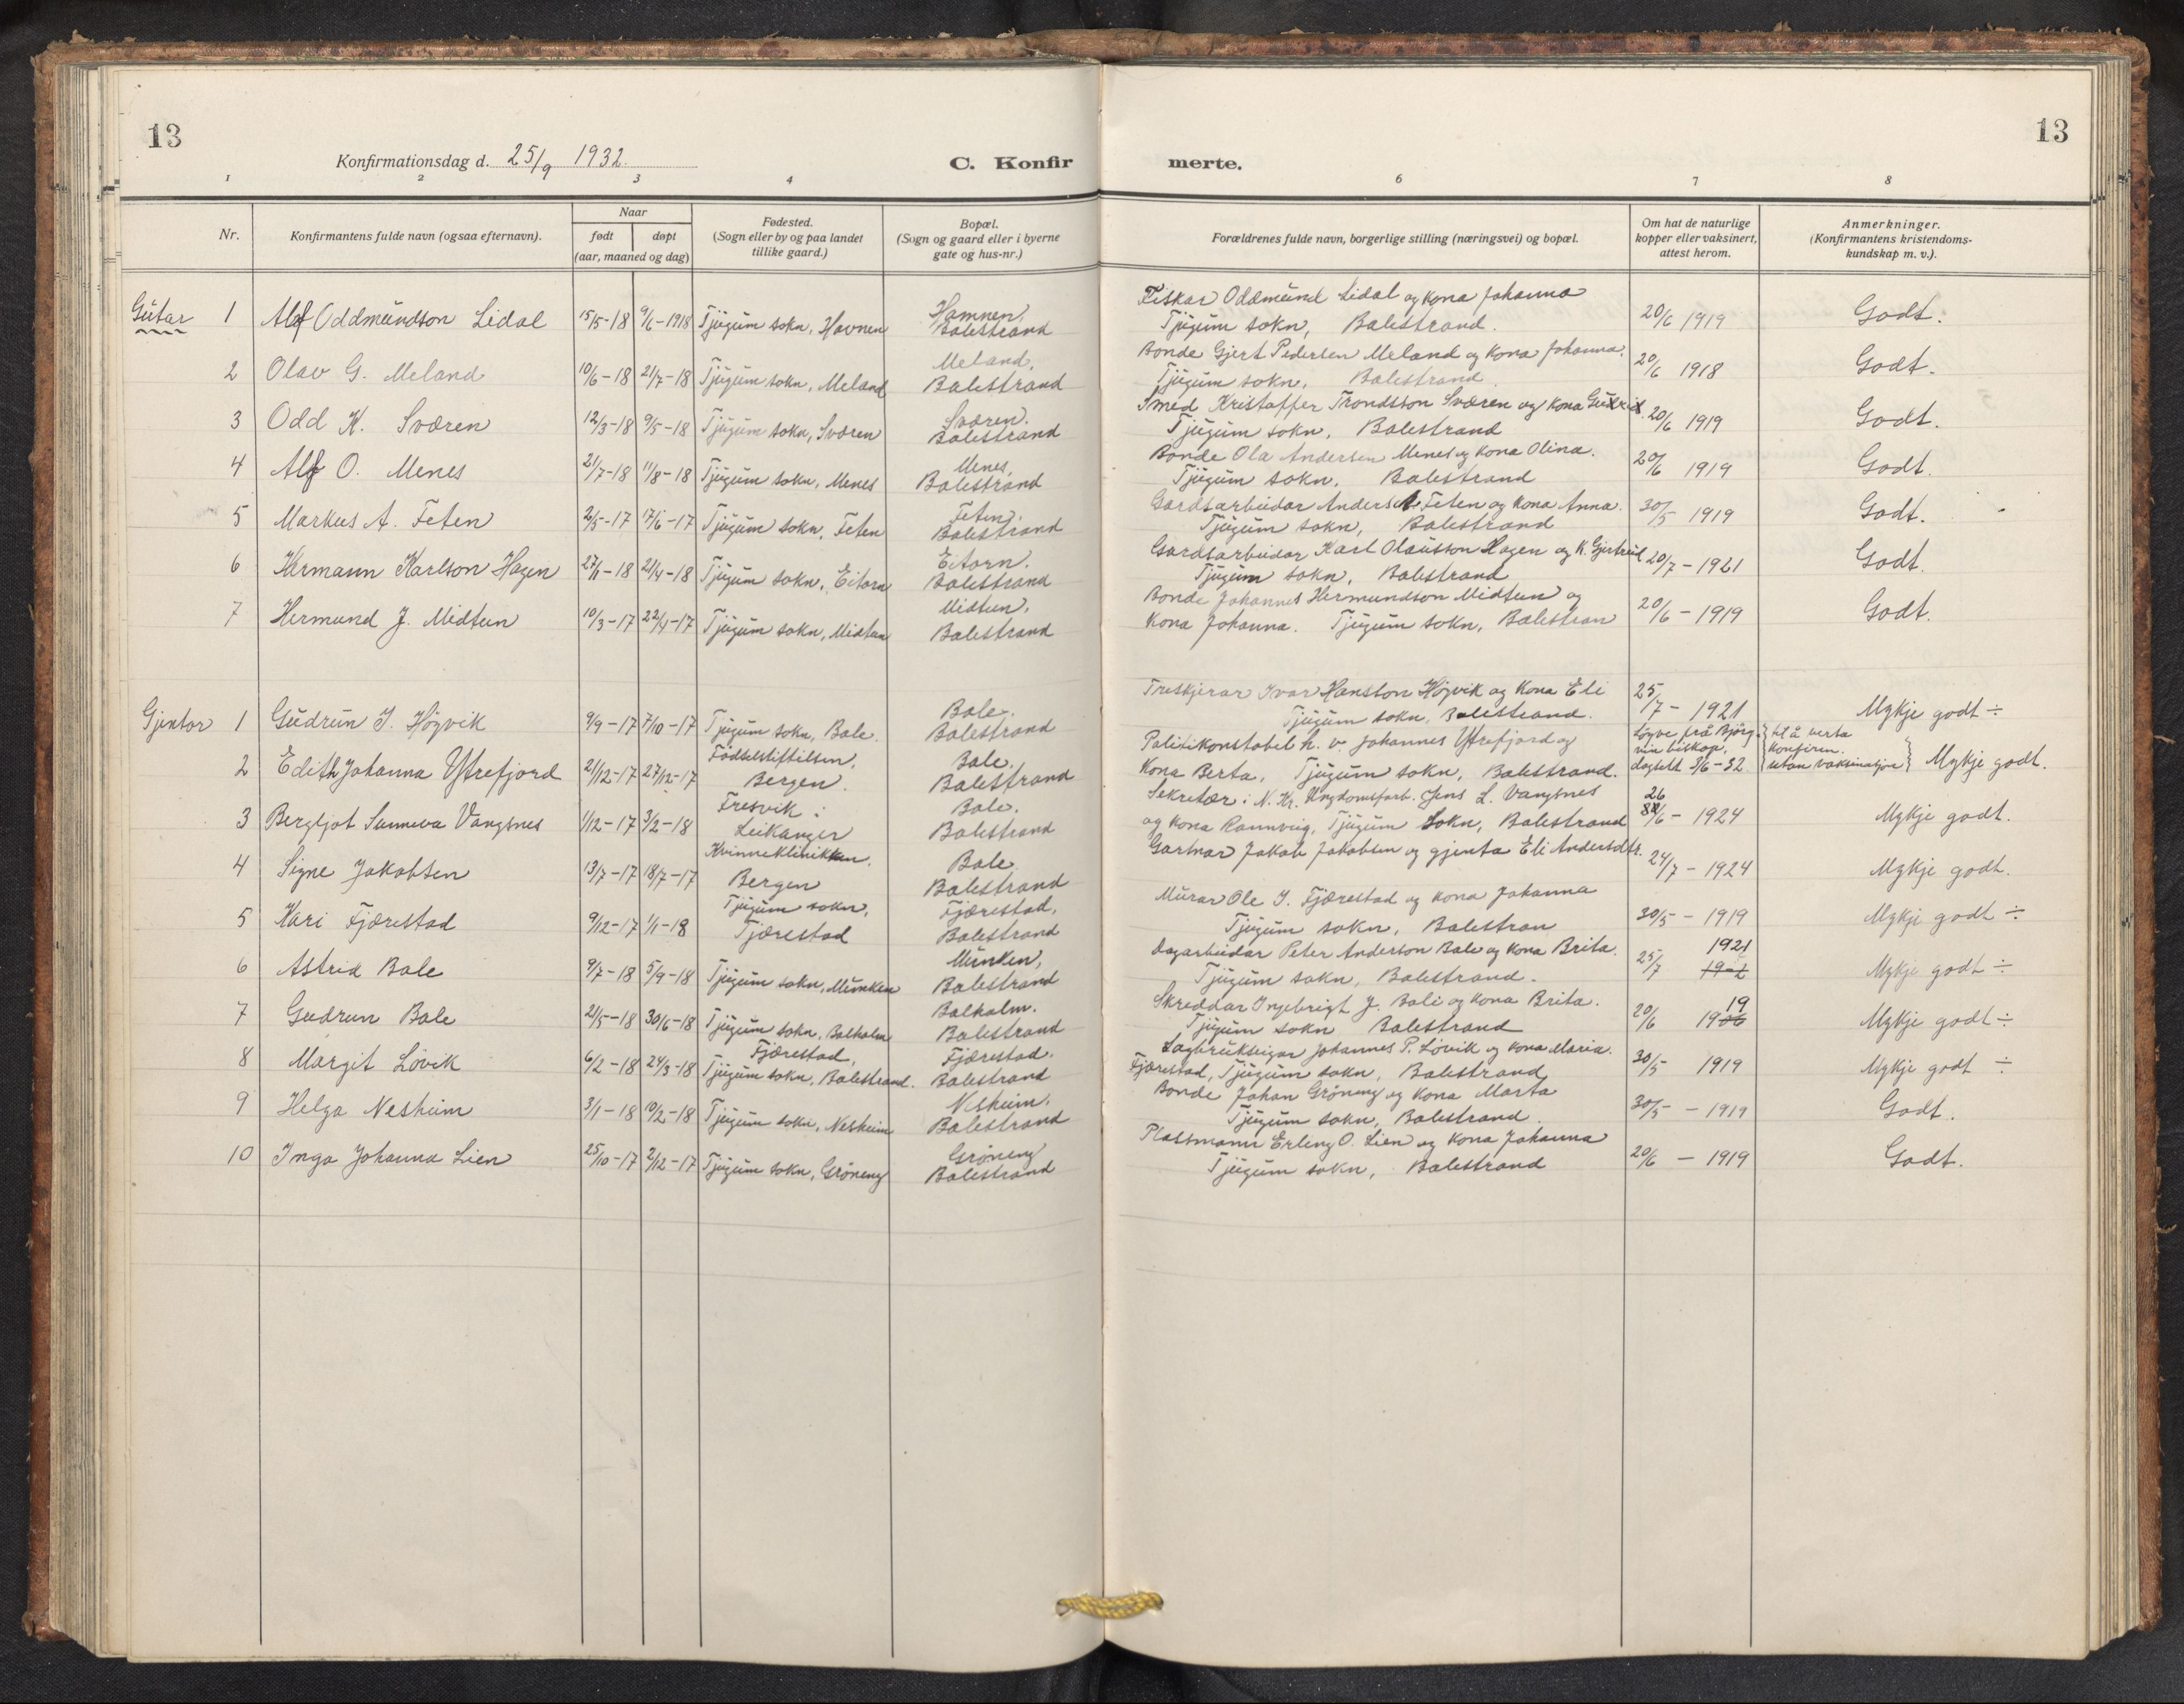 13
13
Konfirmationsdag d. 25/9 1932
C. Konfirmerte.
1 2 3 4 6 7 8
Nr.
Konfirmantens fulde navn (ogsaa efternavn).
Naar
født døpt
(aar, maaned og dag)
Fødested.
(Sogn eller by og paa landet
tillike gaard.)
Bopæl.
(Sogn og gaard eller i byerne
gate og hus-nr.)
Forældrenes fulde navn, borgerlige stilling (næringsvei) og bopæl.
Om hat de naturlige
kopper eller vaksinert,
attest herom.
Anmerkninger.
(Konfirmantens kristendoms-
kundskap m. v.).
Gutar 1 Alf Oddmundson Lidal 15/5-18 9/6-1918 Tjugum sokn, Havnen Hamnen, Balestrand Fiskar Oddmund Lidal og kona Johanna
Tjugum sokn, Balestrand. 20/6 1919 Godt.
2 Olav G. Meland 10/6-18 21/7-18 Tjugum sokn, Meland Meland, Balestrand Bonde Gjert Pedersen Meland og kona Johanna.
Tjugum sokn, Balestrand. 20/6 1918 Godt.
3 Odd K. Sværen 12/3-18 9/5-18 Tjugum sokn, Sværen Sværen. Balestrand Smed Kristoffer Trondsson Sværen og kona
Tjugum sokn, Balestrand 20/6 1919 Godt.
4 Alf O. Menes 21/7-18 11/8-18 Tjugum sokn, Menes Menes, Balestrand Bonde Ola Andersen Menes og kona Olina.
Tjugum sokn, Balestrand 20/6 1919 Godt.
5 Markus A. Feten 2/5-17 17/6-17 Tjugum sokn, Feten Feten. Balestrand Gardsarbeidar Anders A. Feten og kona Anna.
Tjugum sokn, Balestrand 30/5 1919 Godt.
6 Hermann Karlson Hagen 27/1-18 21/4-18 Tjugum sokn, Eitorn Eitorn. Balestrand Gardsarbeidar Karl Olausson Hagen og K. Gjertrud
Tjugum sokn, Balestrand 20/7-1921 Godt.
7 Hermund J. Midtun 10/3-17 22/4-17 Tjugum sokn, Midtun Midtun, Balestrand Bonde Johannes Hermundson Midtun og
kona Johanna. Tjugum sokn, Balestran 20/6-1919 Godt.
Gjentor 1 Gudrun I. Høyvik 9/9-17 7/10-17 Tjugum sokn, Bale. Bale. Balestrand Treskjerar Ivar Hansson Høyvik og kona Eli
Tjugum sokn, Balestrand. 25/7-1921 Mykje godt ÷
2 Edith Johanna Ytrefjord 21/12-17 27/12-17 Fødselstiftelsen, Bergen. Bale. Balestrand Politikonstabel h. v. Johannes Ytrefjord og
kona Berta, Tjugum sokn, Balestrand. Løyve frå Bjørgvin biskop, dagsett 3/6-32 til å verta konfirm. utan vaksinasjon Mykje godt.
3 Bergljot Sunneva Vangsnes 1/12-17 3/2-18 Fresvik i Leikanger Bale. Balestrand Sekretær i N. Kr. Ungdomsforb. Jens L. Vangsnes
og kona Rannveig, Tjugum sokn, Balestrand 26/6-1924 Mykje godt.
4 Signe Jakobsen 13/7-17 18/7-17 Kvinneklinikken, Bergen Bale. Balestrand Gartnar Jakob Jakobsen og gjenta Eli Andersdtr. 24/7-1924 Mykje godt.
5 Kari Fjærestad 9/12-17 1/1-18 Tjugum sokn, Fjærestad Fjærestad, Balestrand Murar Ole I. Fjærestad og kona Johanna
Tjugum sokn, Balestran 30/5-1919 Mykje godt ÷
6 Astrid Bale 9/7-18 5/9-18 Tjugum sokn, Munken Munken, Balestrand Dagarbeidar Peter Anderson Bale og kona Brita.
Tjugum sokn, Balestrand. 25/7 1921 Mykje godt ÷
7 Gudrun Bale 21/5-18 30/6-18 Tjugum sokn, Balholm Balholm. Balestrand Skreddar Ingebrigt J. Bale og kona Brita.
Tjugum sokn Balestrand 20/6 1919 Mykje godt ÷
8 Margit Løvik 6/2-18 24/3-18 Fjærestad, Tjugum sokn, Balestrand. Fjærestad. Balestrand Sagbrukseigar Johannes P. Løvik og kona Maria.
Fjærestad, Tjugum sokn, Balestrand 30/5 1919 Mykje godt ÷
9 Helga Nesheim 3/1-18 10/2-18 Tjugum sokn, Nesheim Nesheim. Balestrand Bonde Johan Grøneng og kona Marta
Tjugum sokn, Balestrand. 30/5-1919 Godt.
10 Inga Johanna Lien 25/10-17 2/12-17 Tjugum sokn, Grøneng Grøneng Balestrand Plassmann Erling O. Lien og kona Johanna
Tjugum sokn, Balestrand 20/6-1919 Godt.